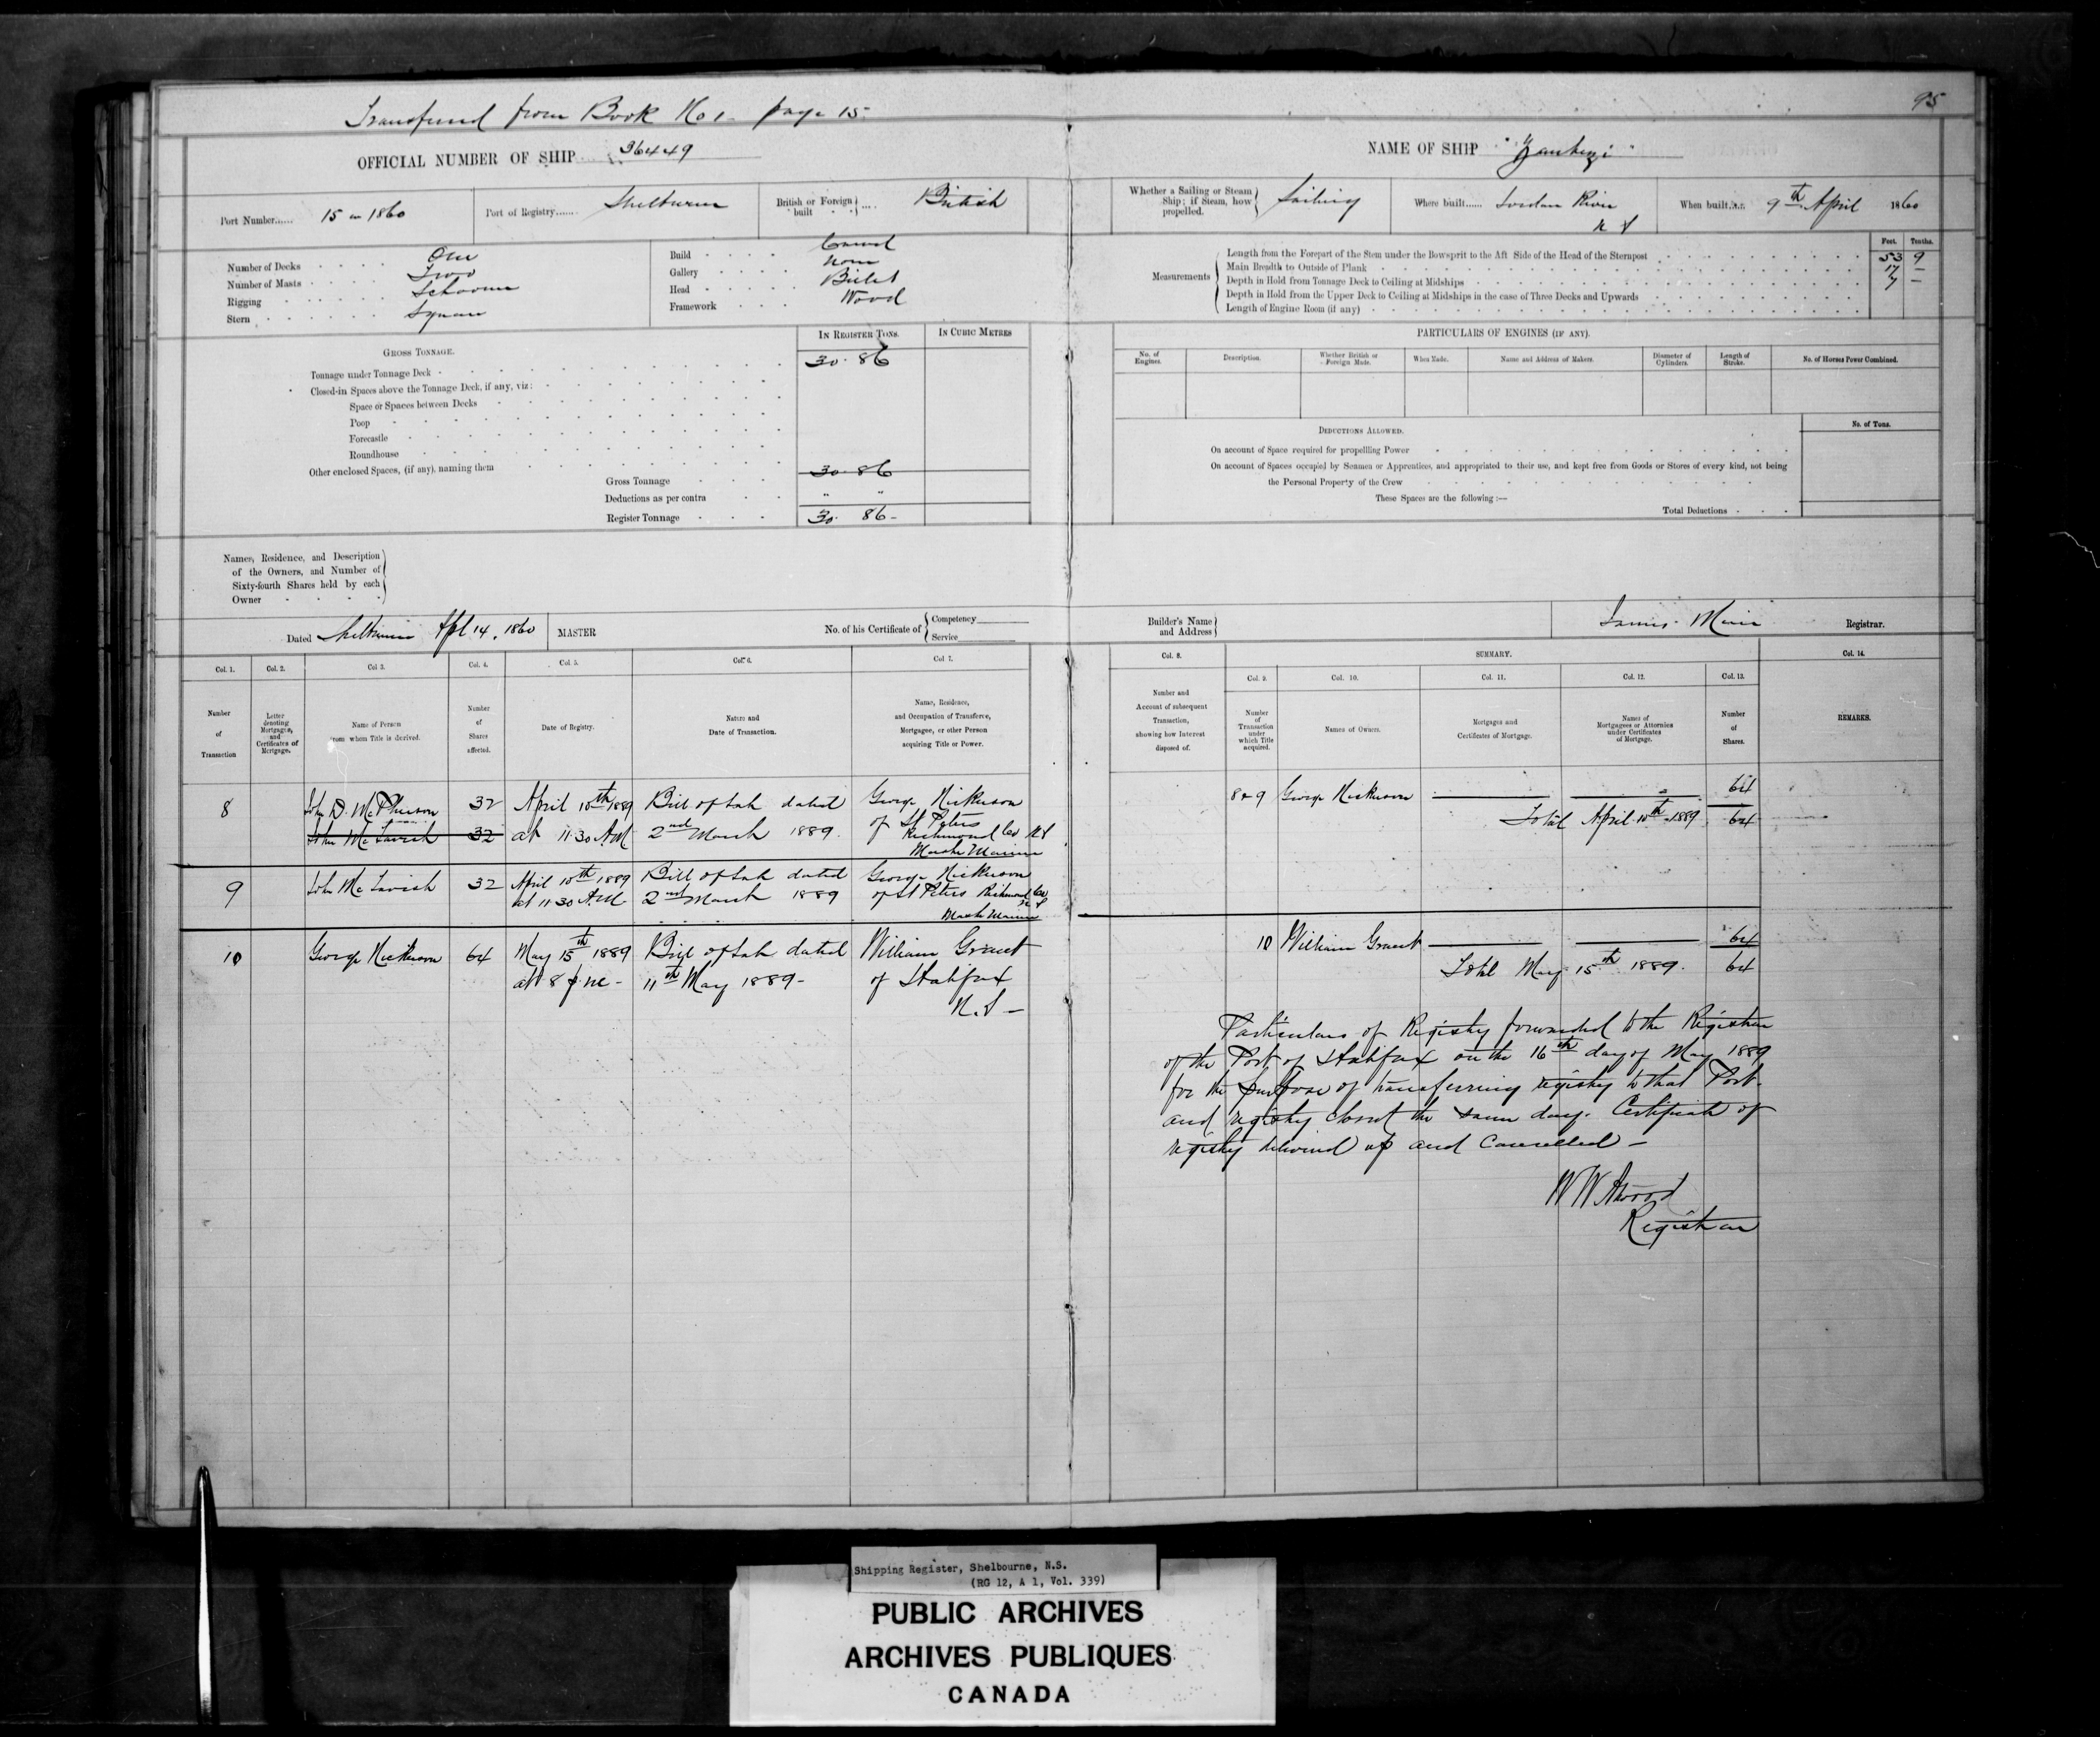 Transferred from Book No 1 page 15
95
OFFICIAL NUMBER OF SHIP 36449
NAME OF SHIP "Yanktzi"
Port Number...... 15 in 1860
Port of Registry...... Shelburne
British or Foreign built .... British
Whether a Sailing or Steam Ship; if Steam, how propelled. Sailing
Where built...... Jordan River N S
When built...... 9th April 1860
Number of Decks One
Number of Masts Two
Rigging Schooner
Stern Square
Build Carvel
Gallery None
Head Billet
Framework Wood
Measurements
Feet. Tenths.
Length from the Forepart of the Stem under the Bowsprit to the Aft Side of the Head of the Sternpost 53 9
Main Breadth to Outside of Plank 17 —
Depth in Hold from Tonnage Deck to Ceiling at Midships 7 —
Depth in Hold from the Upper Deck to Ceiling at Midships in the case of Three Decks and Upwards
Length of Engine Room (if any)
GROSS TONNAGE.
IN REGISTER TONS.
IN CUBIC METRES
Tonnage under Tonnage Deck 30. 86
Closed-in Spaces above the Tonnage Deck, if any, viz:
Space or Spaces between Decks
Poop
Forecastle
Roundhouse
Other enclosed Spaces, (if any), naming them
Gross Tonnage 30. 86
Deductions as per contra " "
Register Tonnage 30. 86 -
PARTICULARS OF ENGINES (IF ANY).
No. of Engines.
Description.
Whether British or Foreign Made.
When Made.
Name and Address of Makers.
Diameter of Cylinders.
Length of Stroke.
No. of Horses Power Combined.
DEDUCTIONS ALLOWED.
No. of Tons.
On account of Space required for propelling Power
On account of Spaces occupied by Seamen or Apprentices, and appropriated to their use, and kept free from Goods or Stores of every kind, not being
the Personal Property of the Crew
These Spaces are the following:—
Total Deductions
Names, Residence, and Description
of the Owners, and Number of
Sixty-fourth Shares held by each
Owner
Dated Shelburne Apl 14, 1860
MASTER
No. of his Certificate of
Competency
Service
Builder's Name and Address
Registrar.
Col. 1.
Col. 2.
Col 3.
Col. 4.
Col. 5.
Col. 6.
Col 7.
Number of Transaction
Letter denoting Mortgages, and Certificates of Mortgage.
Name of Person from whom Title is derived.
Number of Shares affected.
Date of Registry.
Nature and Date of Transaction.
Name, Residence, and Occupation of Transferee, Mortgagee, or other Person acquiring Title or Power.
Col. 8.
SUMMARY.
Col. 14.
Col. 9.
Col. 10.
Col. 11.
Col. 12.
Col. 13.
Number and Account of subsequent Transaction, showing how Interest disposed of.
Number of Transaction under which Title acquired.
Names of Owners.
Mortgages and Certificates of Mortgage.
Names of Mortgagees or Attornies under Certificates of Mortgage.
Number of Shares.
REMARKS.
8 John D. McPherson 32 April 10th 1889 Bill of Sale dated George Nickerson
John McTavish 32 at 11.30 A.M. 2nd March 1889. of St Peters
Richmond Co N S
Master Mariner
8 & 9 George Nickerson 64
Total April 10th 1889 64
9 John McTavish 32 April 10th 1889 Bill of Sale dated George Nickerson
at 11 30 A.M. 2nd March 1889 of St Peters Richmond Co
N S
Master Mariner
10 George Nickerson 64 May 15th 1889 Bill of Sale dated William Grant
at 8 11th May 1889- of Halifax
N.S —
10 William Grant 64
Total May 15th 1889. 64
Particulars of Registry forwarded to the Registrar
of the Port of Halifax on the 16th day of May 1889
for the purpose of transferring registry to that Port
and registry closed the same day. Certificate of
registry delivered up and Cancelled —
W W Atwood
Registrar
Shipping Register, Shelbourne, N.S.
(RG 12, A 1, Vol. 339)
PUBLIC ARCHIVES
ARCHIVES PUBLIQUES
CANADA